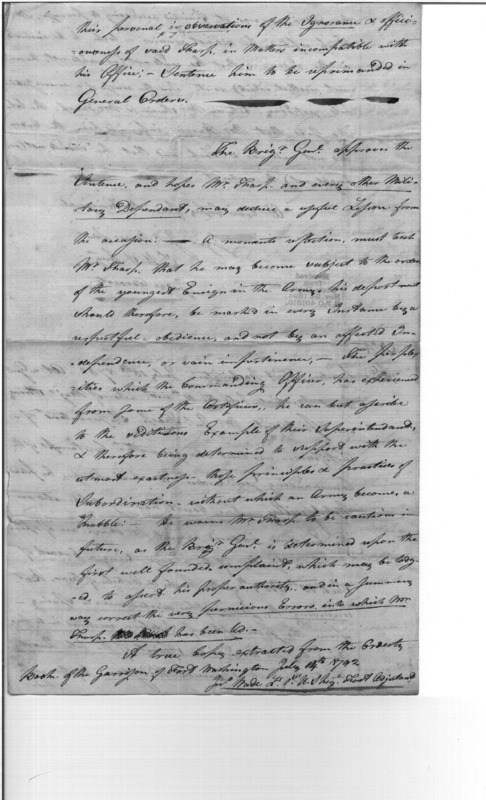 their personal observations of the Ignorance & offici-
-ousness of said Tharp. in Matters incompatible with
his Office; - Sentence him to be reprimanded in
General Orders.
The Brigr. Genl. approves the
Sentence, and hopes Mr. Tharp. and every other Mili-
-tary Dependant, may deduce a useful Lesson from
the occasion: — A moments reflection, must teach
Mr. Tharp. that he may become subject to the orders
of the youngest Ensign in the Army; his deportment
should therefore, be marked in every Instance by a
respectful obedience, and not by an affected In-
-dependence, or vain impertinence, — The perplex-
-ities which the Commanding Officer, has experienced
from some of the Artificers, he can but ascribe
to the seditious Example of their Superintendant,
& therefore being determined to support with the
utmost exactness those principles & practices of
Subordination, without which an Army becomes a
Rabble: He warns Mr. Tharp to be cautious in
future, as the Brigr. Genl. is determined upon the
first well founded complaint, which may be lodg-
-ed, to assert his proper authority, and in a summary
way correct the very pernicious Errors, into which Mr.
Tharp. has been led. -
A true Copy extracted from the Orderly
Book of the Garrison of Fort Washington July 14th 1792
Jno. Wade Lt. 1st. U.S Regt. & Fort Adjutant